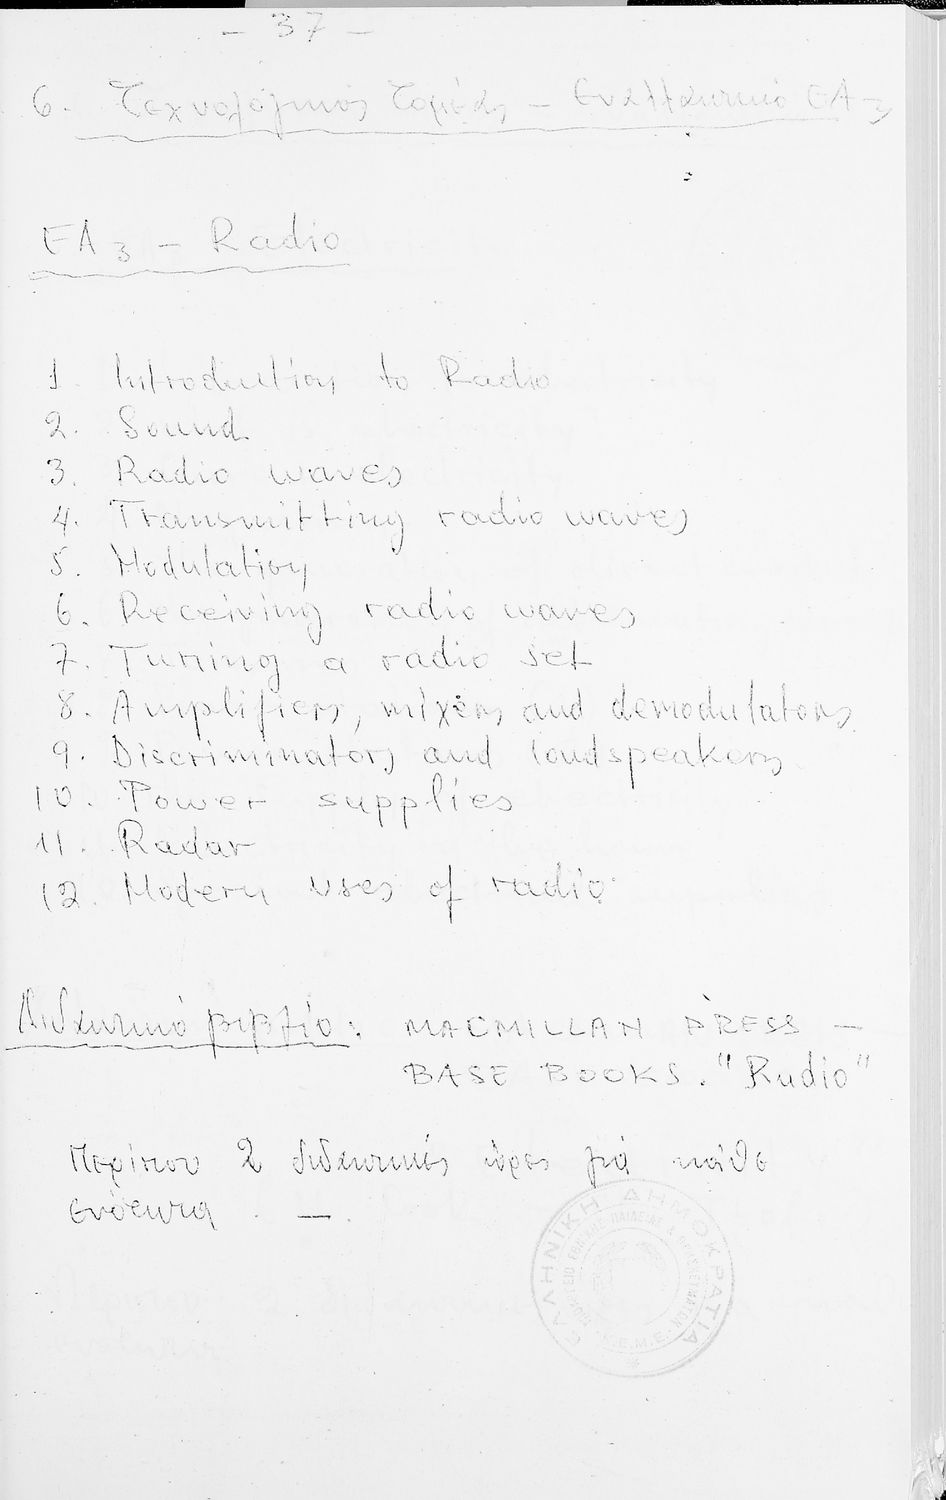 - 37 -
6. Τεχνολογικός Τομέας - Εναλλακτικό ΕΑ3
ΕΑ3 - Radio
1. Introduction to Radio
2. Sound
3. Radio waves
4. Transmitting radio waves
5. Modulation
6. Receiving radio waves
7. Tuning a radio set
8. Amplifiers, mixers and demodulators
9. Discriminators and loudspeakers
10. Power supplies
11. Radar
12. Modern uses of radio
Διδακτικό βιβλίο: MACMILLAN PRESS -
BASE BOOKS. "Radio"
Περίπου 2 διδακτικές ώρες γιά κάθε
ενότητα. -.
ΕΛΛΗΝΙΚΗ ΔΗΜΟΚΡΑΤΙΑ
ΥΠΟΥΡΓΕΙΟ ΕΘΝΙΚΗΣ ΠΑΙΔΕΙΑΣ & ΘΡΗΣΚΕΥΜΑΤΩΝ
Κ.Ε.Μ.Ε.